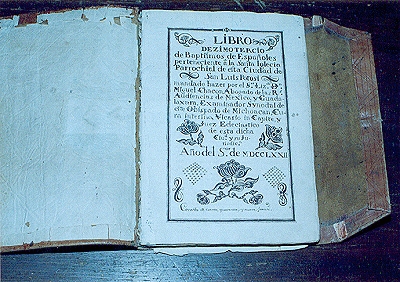 LIBRO
DEZIMOTERCIO
de Baptismos de Españoles
perteneciente à la Santa Iglecia
Parrochial de esta Ciudad de
San Luis Potosi
mandado hazer por el Sr. Lizdo. Dn.
Miguel Chacon, Abogado de las Rs.
Audiencias de Mexico, y Guada
laxara, Examinador Synodal de
este Obispado de Michoacan, Cu
ra interino, Vicario in Capite, y
Juez Eclesiastico
de esta dicha
Ciud. y su Juris
dicn.
Año del S. de MDCCLXXII